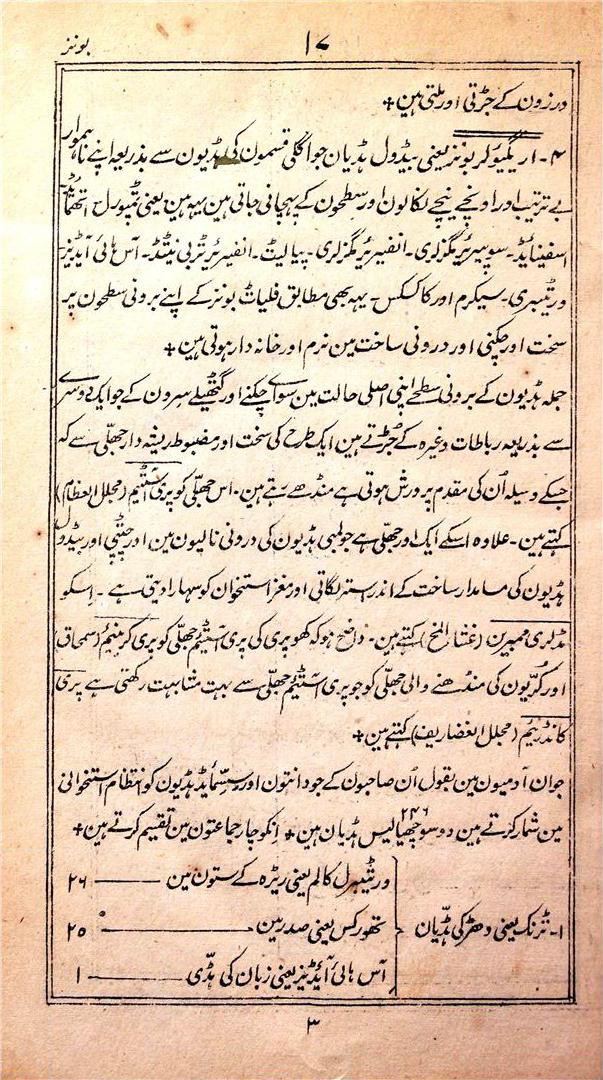 بونز
۱۷
درزون کے جڑتی اور ملتی ہین+
۴- اریگیولر بونز یعنی بیڈول ہڈیان جو اگلی قسمون کی ہڈیون سے بذریعہ اپنے ناہموار
بے ترتیب اور اونچے نیچے نکالون اور سطحون کے پہچانی جاتی ہین یہہ ہین یعنی ٹمپورل- اتھمائڈ
اسفینائڈ- سوپیریر میگزلری- انفیریر میگزلری- پیالیٹ- انفیریر ٹربی نیٹڈ- آس ہائی آئڈیز
ورٹیبری- سیکرم اور کاکسکس- یہہ بھی مطابق فلیاٹ بونز کے اپنے برونی سطحون پر
سخت اور چکنی اور درونی ساخت مین نرم اور خانہ دار ہوتی ہین+
جملہ ہڈیون کے برونی سطحے اپنی اصلی حالت مین سوائے چکنے اور گٹھیلے سرون کے جو ایک دوسرے
سے بذریعہ رباطات وغیرہ کے جڑتے ہین ایک طرح کی سخت اور مضبوط ریشہ دار جھلی سے کہ
جسکے وسیلہ اُن کی مقدم پرورش ہوتی ہے منڈھے رہتے ہین- اس جھلّی کو پری اسٹیم (مجلل العظام)
کہتے ہین- علاوہ اسکے ایک اور جھلّی ہے جو لمبی ہڈیون کی درونی نالیون مین اور چپٹی اور بیڈول
ہڈیون کی مسامدار ساخت کے اندر استر لگاتی اور مغز استخوان کو سہارا دیتی ہے- اِسکو
مڈلری ممبرین (غشاء المخ) کہتے ہین- واضح ہو کہ کھوپری کی پری اسٹیم جھلّی کو پری کرینیم (سمحاق)
اور کُرّیون کی منڈھنے والی جھلّی کو جو پری اسٹیم جھلّی سے بہت مشابہت رکھتی ہے پری
کانڈریم (مجلل الغضاریف) کہتے ہین+
جوان آدمیون مین بقول اُن صاحبون کے جو دانتون اور سسمائڈ ہڈیون کو انتظام استخوانی
مین شمار کرتے ہین دو سو چھیالیس ۲۴۶ ہڈیان ہین+ اِنکو چار جماعتون مین تقسیم کرتے ہین+
ورٹیبرل کالم یعنی ریڑہ کے ستون مین —— ۲۶
۱- ٹرنک یعنی دھڑ کی ہڈّیان { تھورکس یعنی صدر مین —— ۲۵
آس ہائی آئیڈیز یعنی زبان کی ہڈّی —— ۱
۳